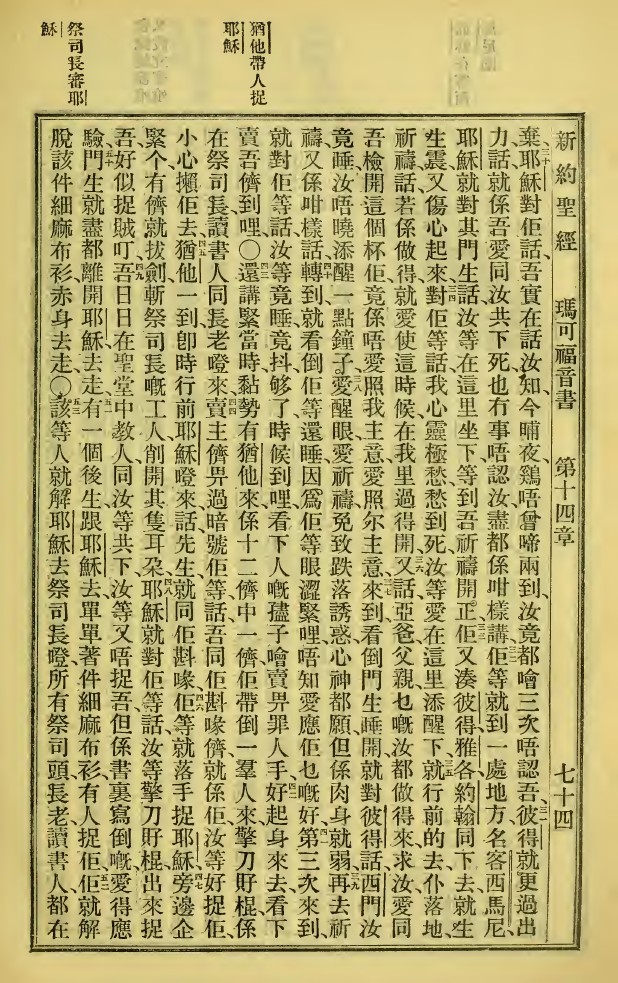 新約聖經 瑪可福音書 第十四章 七十四
猶他帶人捉耶穌
祭司長審耶穌
棄、三十耶穌對佢話、吾實在話汝知、今晡夜、鷄唔曾啼兩到、汝竟都噲三次唔認吾、三一彼得就更過出
力話、就係吾愛同汝共下死也冇事唔認汝、盡都係咁樣講、三二佢等就到一處地方、名客西馬尼、
耶穌就對其門生話、汝等在這里坐下、等到吾祈禱開正、三三佢又湊彼得雅各約翰同下去、就生
生震又傷心起來、三四對佢等話、我心靈極愁、愁到死、汝等愛在這里添醒下、三五就行前的去、仆落地
祈禱話、若係做得、就愛使這時候在我里過得開、三六又話、亞爸父親、乜嘅汝都做得來、求汝愛同
吾檢開這個杯、佢竟係唔愛照我主意、愛照尔主意、三七來到看倒門生睡開、就對彼得話、西門汝
竟睡、汝唔曉添醒一點鐘子、三八愛醒眼愛祈禱、免致跌落誘惑、心神都願、但係肉身就弱、三九再去祈
禱、又係咁樣話、四十轉到就看倒佢等還睡、因爲佢等眼澀緊哩、唔知愛應佢乜嘅好、四一第三次來到、
就對佢等話、汝等竟睡竟抖、够了、時候到哩、看下人嘅孻子噲賣畀罪人手、四二好起身來去、看下
賣吾儕到哩〇四三還講緊當時、黏勢有猶他來、係十二儕中一儕、佢帶倒一羣人來、擎刀財棍、係
在祭司長讀書人同長老嶝來、四四賣主儕畀過暗號佢等話、吾同佢斟喙儕就係佢、汝等好捉佢、
小心攋佢去、四五猶他一到、卽時行前耶穌嶝來話、先生、就同佢斟喙、四六佢等就落手捉耶穌、四七旁邊企
緊个有儕就拔劍、斬祭司長嘅工人、削開其隻耳朶、四八耶穌就對佢等話、汝等擎刀財棍出來捉
吾、好似捉賊叮、四九吾日日在聖堂中教人、同汝等共下、汝等又唔捉吾、但係書裏寫倒嘅愛得應
驗、五十門生就盡都離開耶穌去走、五一有一個後生跟耶穌去、單單著件細麻布衫、有人捉佢、五二佢就解
脫該件細麻布衫、赤身去走、〇五三該等人就解耶穌去祭司長嶝、所有祭司頭長老讀書人都在